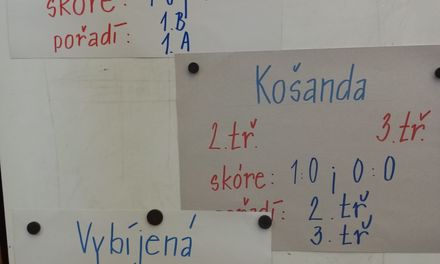 skóre:
pořadí: 1.B
1.A
Košanda
2.tř. 3.tř.
skóre: 1:0 ; 0:0
pořadí: 2.tř
3.tř
Vybíjená